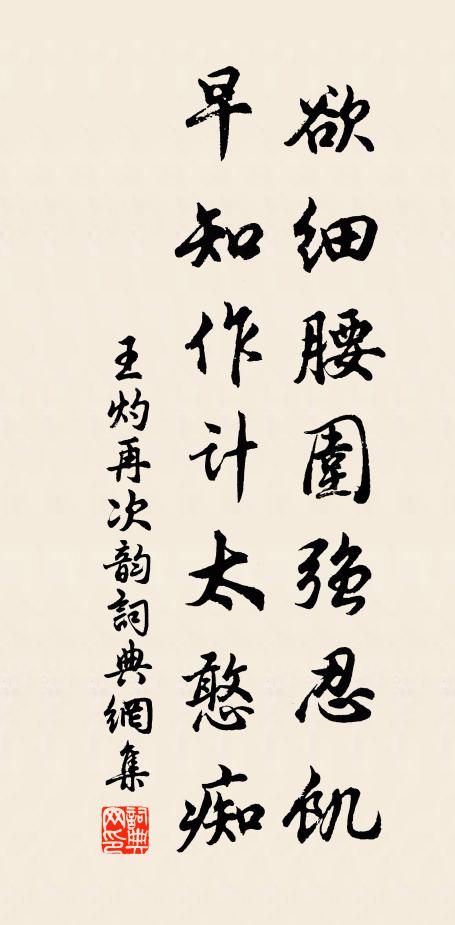 欲细腰围强忍饥
早知作计太憨痴
王灼再次韵詞典網集
詞典网印